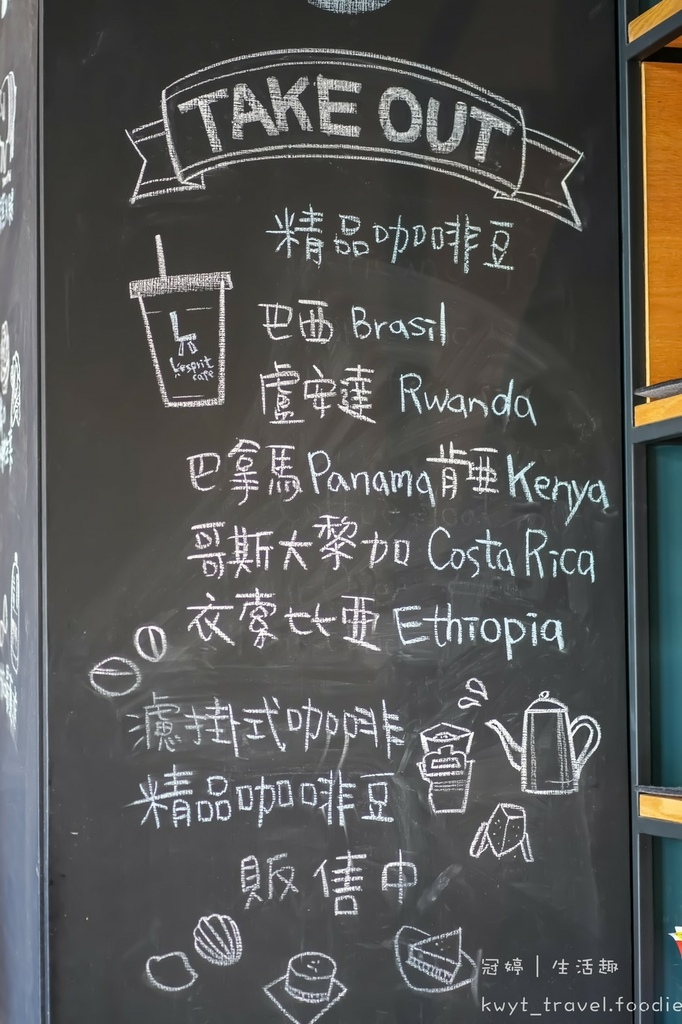 TAKE OUT
精品咖啡豆
L'esprit
cafe
巴西 Brasil
盧安達 Rwanda
巴拿馬 Panama 肯亞 Kenya
哥斯大黎加 Costa Rica
衣索比亞 Ethiopia
濾掛式咖啡
精品咖啡豆
販售中
冠婷｜生活趣
kwyt_travel.foodie